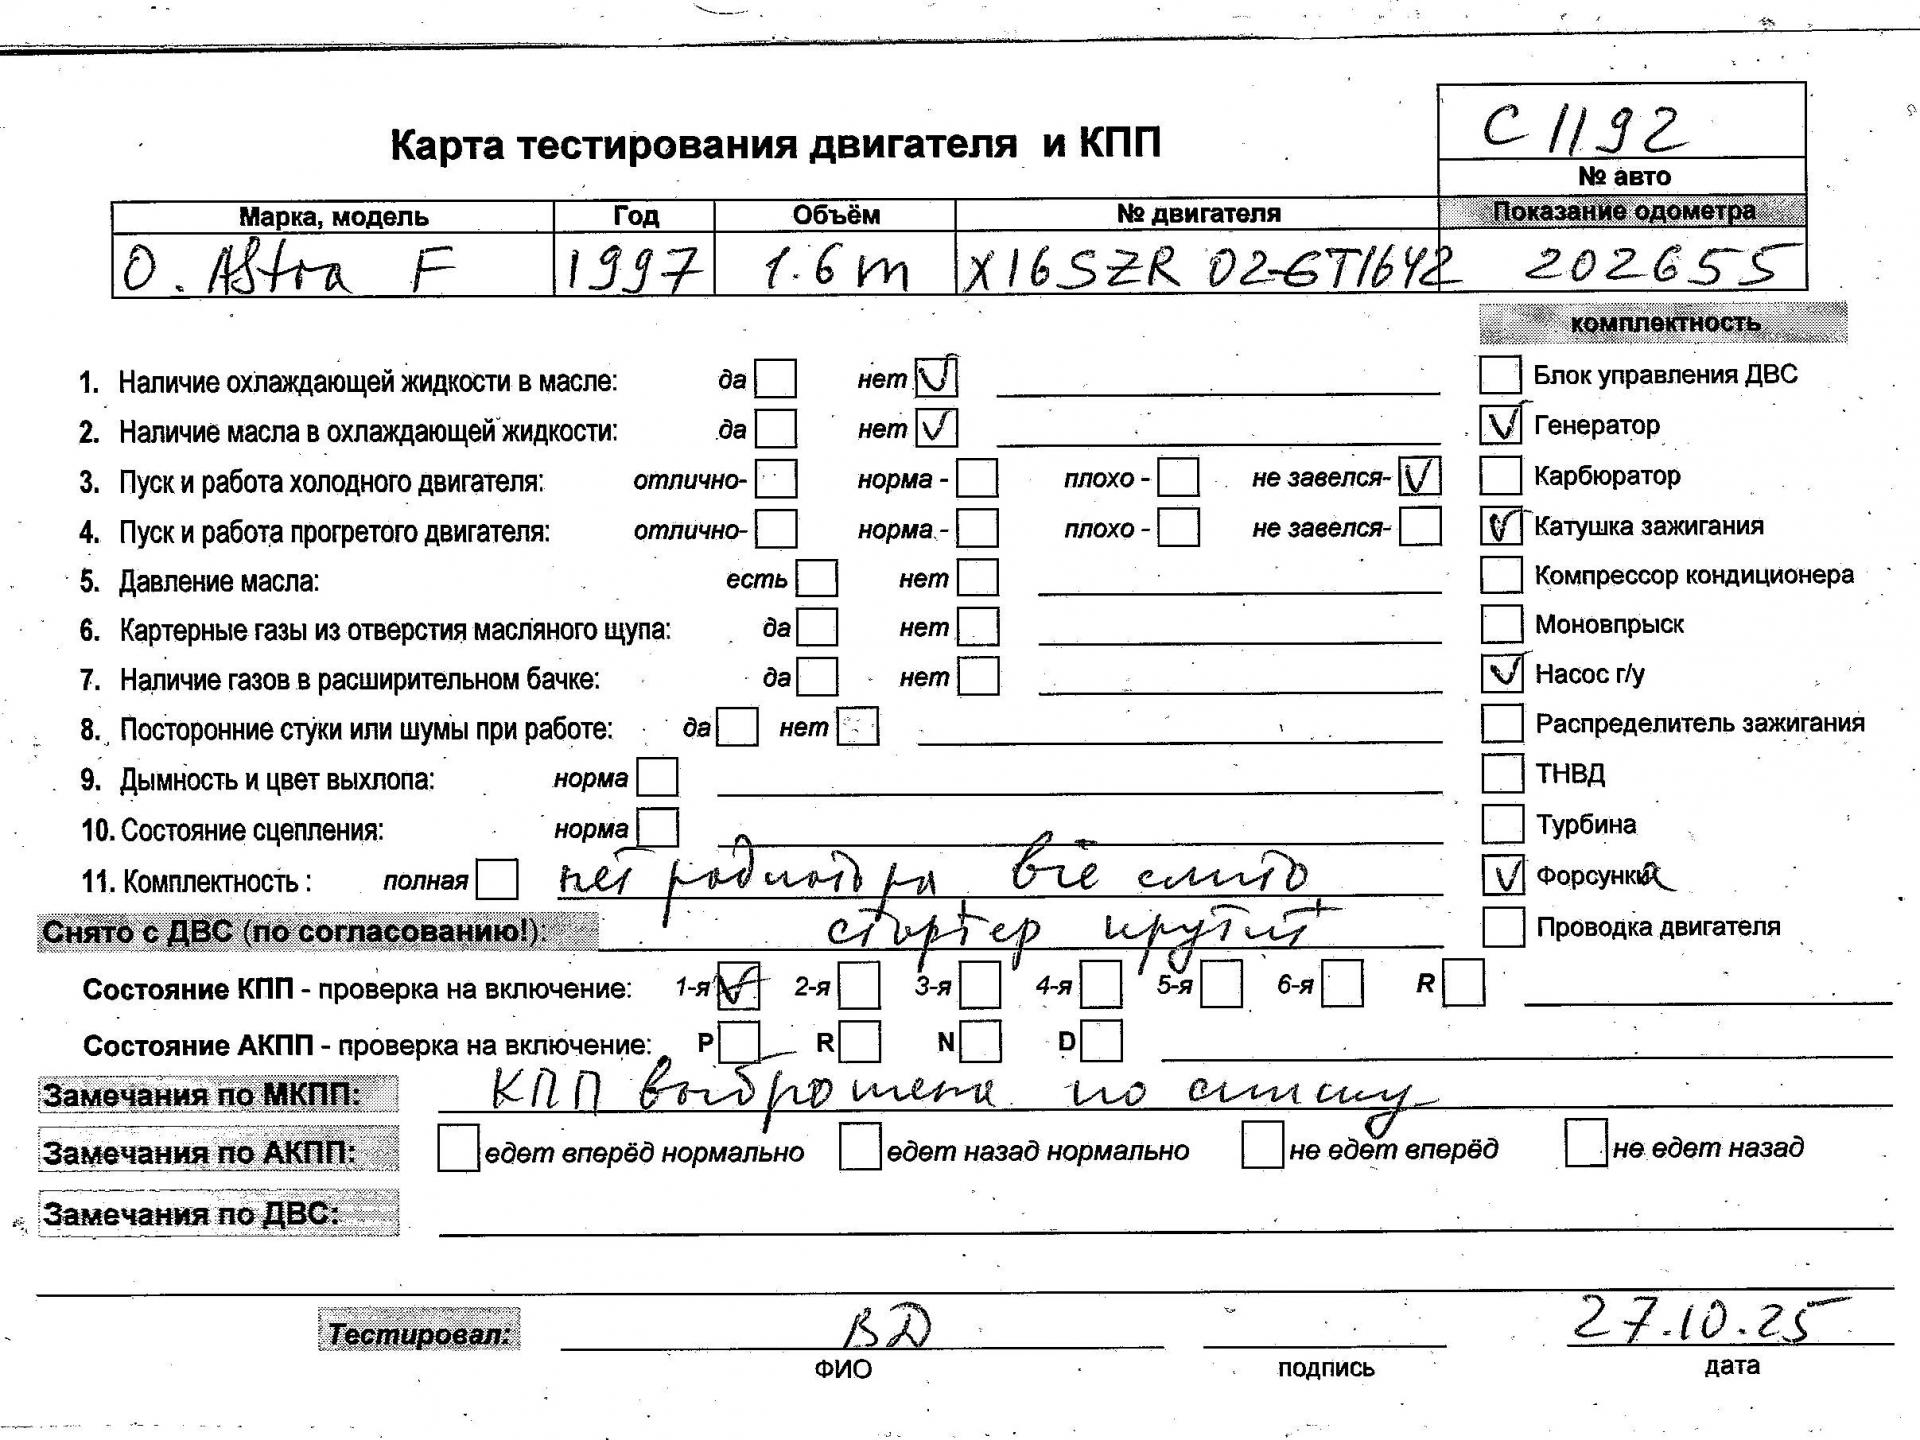 С 1192
Карта тестирования двигателя и КПП
№ авто
Марка, модель Год Объём № двигателя Показание одометра
O. Astra F 1997 1.6 m X16SZR 02-GT1642 202655
комплектность
1. Наличие охлаждающей жидкости в масле: да нет Блок управления ДВС
2. Наличие масла в охлаждающей жидкости: да нет Генератор
3. Пуск и работа холодного двигателя: отлично- норма - плохо - не завелся- Карбюратор
4. Пуск и работа прогретого двигателя: отлично- норма - плохо - не завелся- Катушка зажигания
5. Давление масла: есть нет Компрессор кондиционера
6. Картерные газы из отверстия масляного щупа: да нет Моновпрыск
7. Наличие газов в расширительном бачке: да нет Насос г/у
8. Посторонние стуки или шумы при работе: да нет Распределитель зажигания
9. Дымность и цвет выхлопа: норма ТНВД
10. Состояние сцепления: норма Турбина
11. Комплектность : полная нет радиатора всё слито Форсунки
Снято с ДВС (по согласованию!): стартер крутит Проводка двигателя
Состояние КПП - проверка на включение: 1-я 2-я 3-я 4-я 5-я 6-я R
Состояние АКПП - проверка на включение: P R N D
Замечания по МКПП: КПП выброшена по списку
Замечания по АКПП: едет вперёд нормально едет назад нормально не едет вперёд не едет назад
Замечания по ДВС:
Тестировал: ВД 27.10.25
ФИО подпись дата